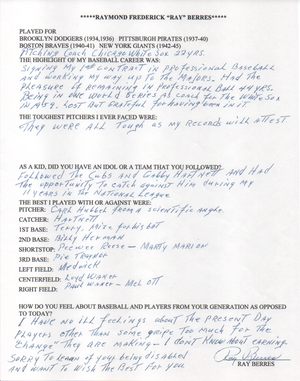 *****RAYMOND FREDERICK "RAY" BERRES*****
PLAYED FOR
BROOKLYN DODGERS (1934,1936) PITTSBURGH PIRATES (1937-40)
BOSTON BRAVES (1940-41) NEW YORK GIANTS (1942-45)
Pitching Coach Chicago White Sox 22 yrs.
THE HIGHLIGHT OF MY BASEBALL CAREER WAS:
Signing my 1st contract in Professional Baseball
and working my way up to the Majors. Had the
pleasure of remaining in Professional Ball 44 yrs.
Being in one World Series as Coach for the White Sox
in 1959. Lost but grateful for having been in it
THE TOUGHEST PITCHERS I EVER FACED WERE:
They were all tough as my records will attest
AS A KID, DID YOU HAVE AN IDOL OR A TEAM THAT YOU FOLLOWED?
Followed the Cubs and Gabby Hartnett and had
the opportunity to catch against him during my
11 years in the National League
THE BEST I PLAYED WITH OR AGAINST WERE:
PITCHER: Carl Hubbell from a scientific angle.
CATCHER: Hartnett
1ST BASE: Terry,
2ND BASE: Billy Herman
SHORTSTOP: Peewee Reese - Marty Marion
3RD BASE: Pie Traynor
LEFT FIELD: Medwick
CENTERFIELD: Lloyd Waner
RIGHT FIELD: Paul Waner - Mel Ott
HOW DO YOU FEEL ABOUT BASEBALL AND PLAYERS FROM YOUR GENERATION AS OPPOSED
TO TODAY?
I have no ill feelings about the present day
players other than some gripe too much for the
"change" they are making - I don't know about earning
Sorry to learn of you being disabled
and want to wish the best for you
Ray Berres
RAY BERRES